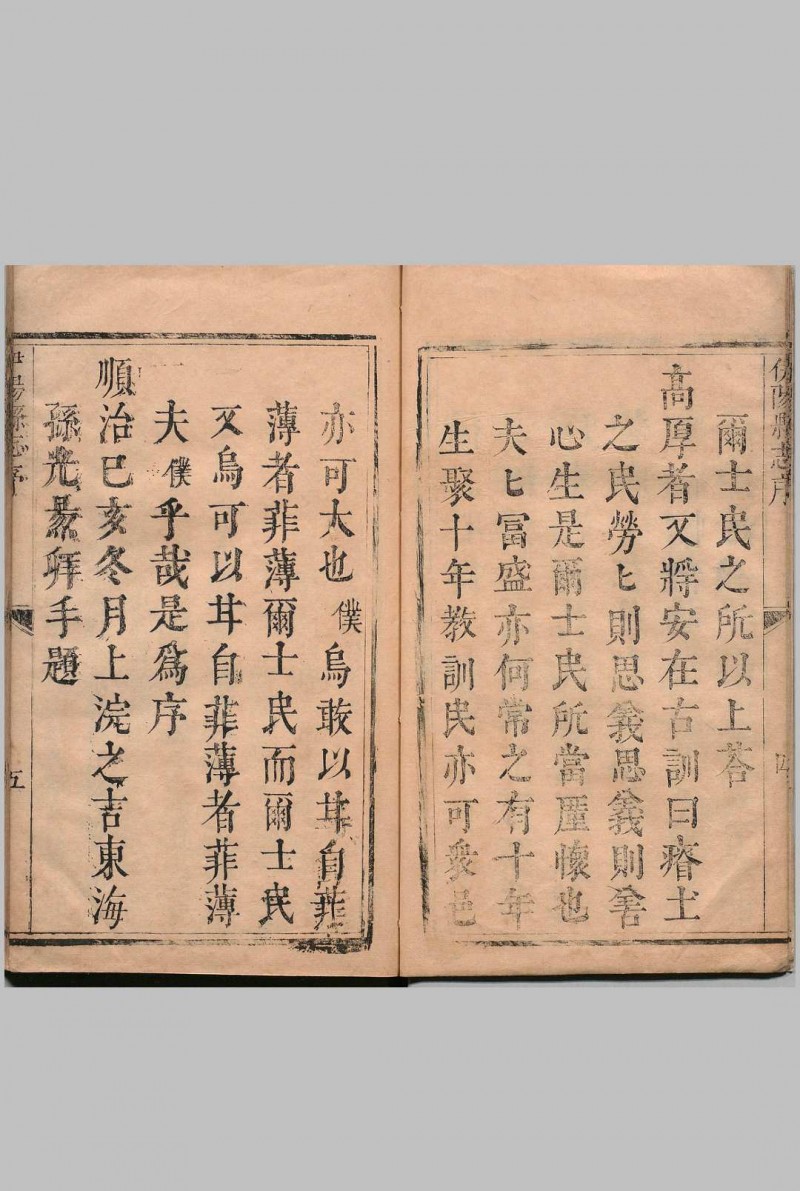 陽縣志序
爾士民之所以上荅
高厚者又將安在古訓曰瘠土
之民勞匕則思義思義則善
心生是爾士民所當廑懷也
夫匕冨盛亦何常之有十年
生聚十年教訓民亦可衆邑
亦可大也僕烏敢以其自菲
薄者菲薄爾士民而爾士民
又烏可以其自菲薄者菲薄
夫僕乎哉是爲序
順治己亥冬月上浣之吉東海
孫光 拜手題
陽縣志序
五